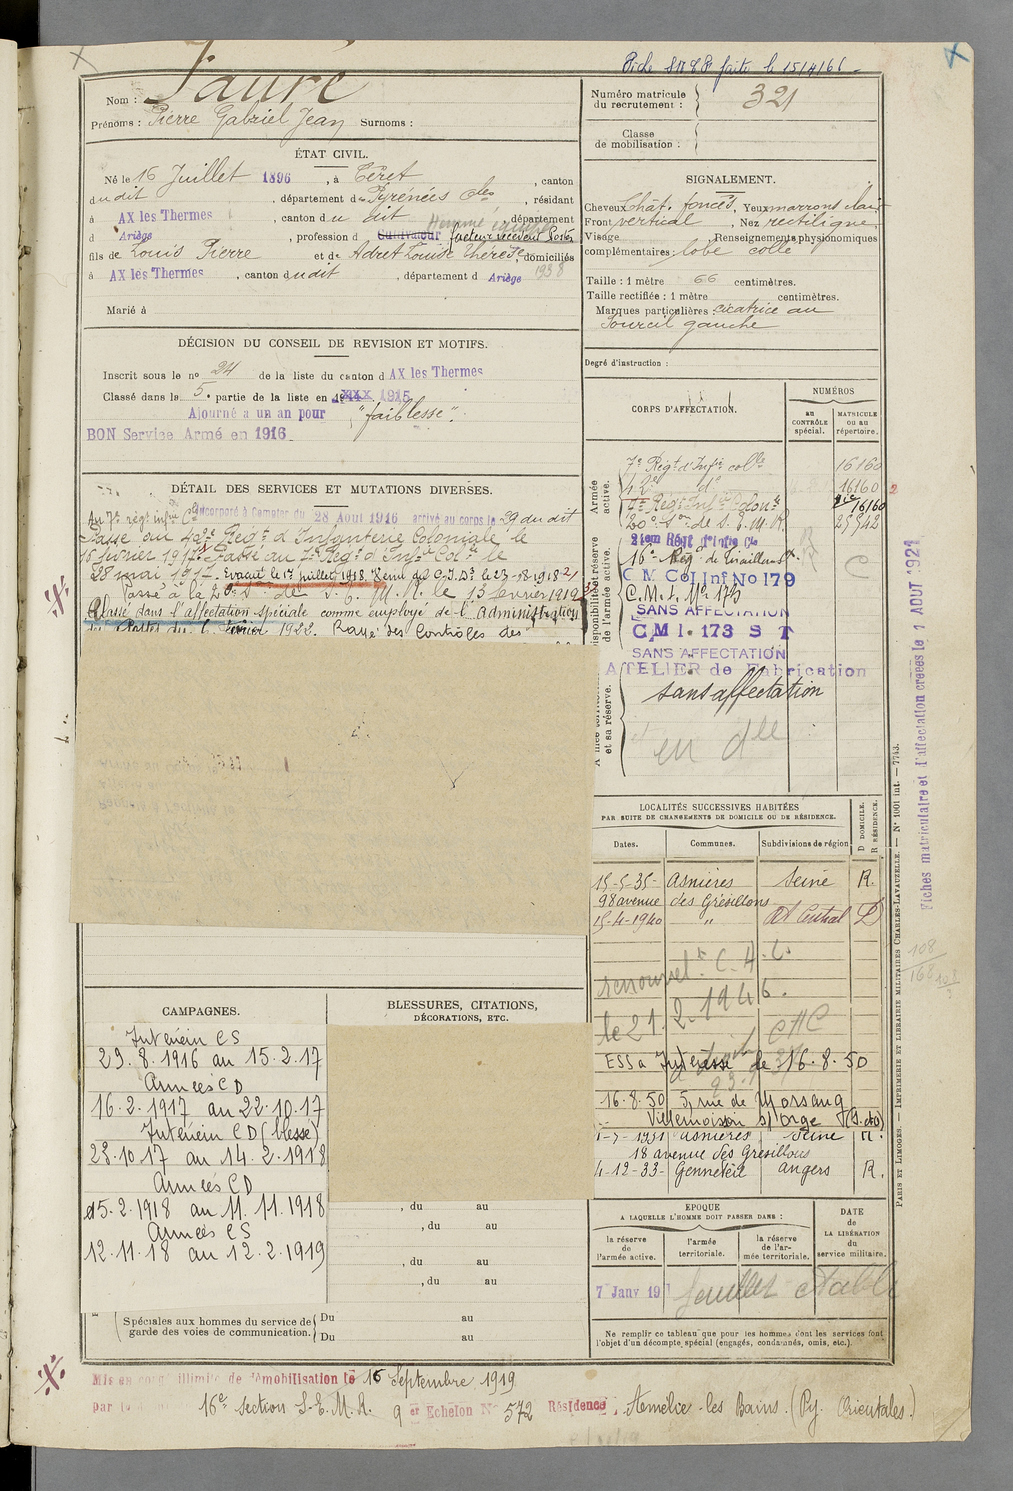 Fiche faite le 15/4/66
Nom : Fauré
Prénoms : Pierre Gabriel Jean Surnoms :
Numéro matricule du recrutement : 321
Classe de mobilisation :
ÉTAT CIVIL.
Né le 16 Juillet 1896, à Céret, canton
dudit, département des Pyrénées Oles, résidant
à AX les Thermes, canton du dit, département
d Ariège, profession d Cultivateur facteur receveur Postes
fils de Louis Pierre et de Adret Louise Thérèse, domiciliés
à AX les Thermes, canton dudit, département d Ariège 1938
Marié à
SIGNALEMENT.
Cheveux chât. foncés, Yeux marrons clair
Front vertical, Nez rectiligne
Visage Renseignements physionomiques
complémentaires : lobe collé
Taille : 1 mètre 66 centimètres.
Taille rectifiée : 1 mètre centimètres.
Marques particulières : cicatrice au
Sourcil gauche
Degré d'instruction :
DÉCISION DU CONSEIL DE REVISION ET MOTIFS.
Inscrit sous le no 24 de la liste du canton d AX les Thermes
Classé dans la 5e partie de la liste en 1915
Ajourné a un an pour "faiblesse".
BON Service Armé en 1916
DÉTAIL DES SERVICES ET MUTATIONS DIVERSES.
Au 7e régt infie Cle Incorporé à compter du 28 Aout 1916 arrivé au corps le 29 du dit
Passé au 42e Régt d'Infanterie Coloniale le
15 février 1917. Passé au 7e Régt d'Infie Colle le
28 mai 1917. Evacué le 17 juillet 1918. le 23-10-1918
Passé à la 20e Son de S. E. M. R. le 13 février 1919
Classé dans l'affectation spéciale comme employé de l'Administration
des Postes du février 1922. Rayé des Contrôles des
CORPS D'AFFECTATION.
NUMÉROS
au CONTRÔLE spécial.
MATRICULE ou au répertoire.
Armée active.
7e Régt d'Infie colle 16160
42e do 16160
7e Régt Infie Colone 16160
20e Son de S. E. M. R. 25942
Disponibilité et réserve de l'armée active.
24em Régt d'Infie Cle
16e Rég. de Tirailleurs
C M Col Inf No 179
C. M. I. No 173
SANS AFFECTATION
C M I. 173 S T
SANS AFFECTATION
ATELIER de Fabrication
et sa réserve.
sans affectation
en dlle
LOCALITÉS SUCCESSIVES HABITÉES
PAR SUITE DE CHANGEMENTS DE DOMICILE OU DE RÉSIDENCE.
Dates. Communes. Subdivisions de région
D DOMICILE.
R RÉSIDENCE.
15-5-35- Asnières Seine R.
98 avenue des Grésillons
15-4-1940 " Central D
renouvelt C. A. C.
le 21.2.1946.
CAC
de 16.8.50
16.8.50 5, rue de Morsang
Villemoisson s/ Orge (S. et O)
1-7-1931 Asnières Seine R.
18 avenue des Grésillons
4-12-33- Genneteil Angers R.
CAMPAGNES.
Intérieur CS
29.8.1916 au 15.2.17
Armées CD
16.2.1917 au 22.10.17
Intérieur CD (blessé)
23.10.17 au 14.2.1918
Armées CD
15.2.1918 au 11.11.1918
Armées CS
12.11.18 au 12.2.1919
BLESSURES, CITATIONS,
DÉCORATIONS, ETC.
, du au
, du au
, du au
, du au
Spéciales aux hommes du service de garde des voies de communication.
Du au
Du au
EPOQUE
A LAQUELLE L'HOMME DOIT PASSER DANS :
la réserve de l'armée active.
l'armée territoriale.
la réserve de l'armée territoriale.
DATE de LA LIBÉRATION du service militaire.
7 Janv 19
feuillet établi
Ne remplir ce tableau que pour les hommes dont les services font
l'objet d'un décompte spécial (engagés, condamnés, omis, etc.).
Mis en congé illimité de démobilisation le 15 Septembre 1919
par le 16e section S.E.M.R. 9 er Echelon No 572 Résidence : Amélie-les-Bains. (Py. Orientales.)
Fiches matriculaire et d'affectation créées le 1 AOUT 1921
108
168
PARIS ET LIMOGES. — IMPRIMERIE ET LIBRAIRIE MILITAIRES CHARLES-LAVAUZELLE. — No 1001 int. — 7743.